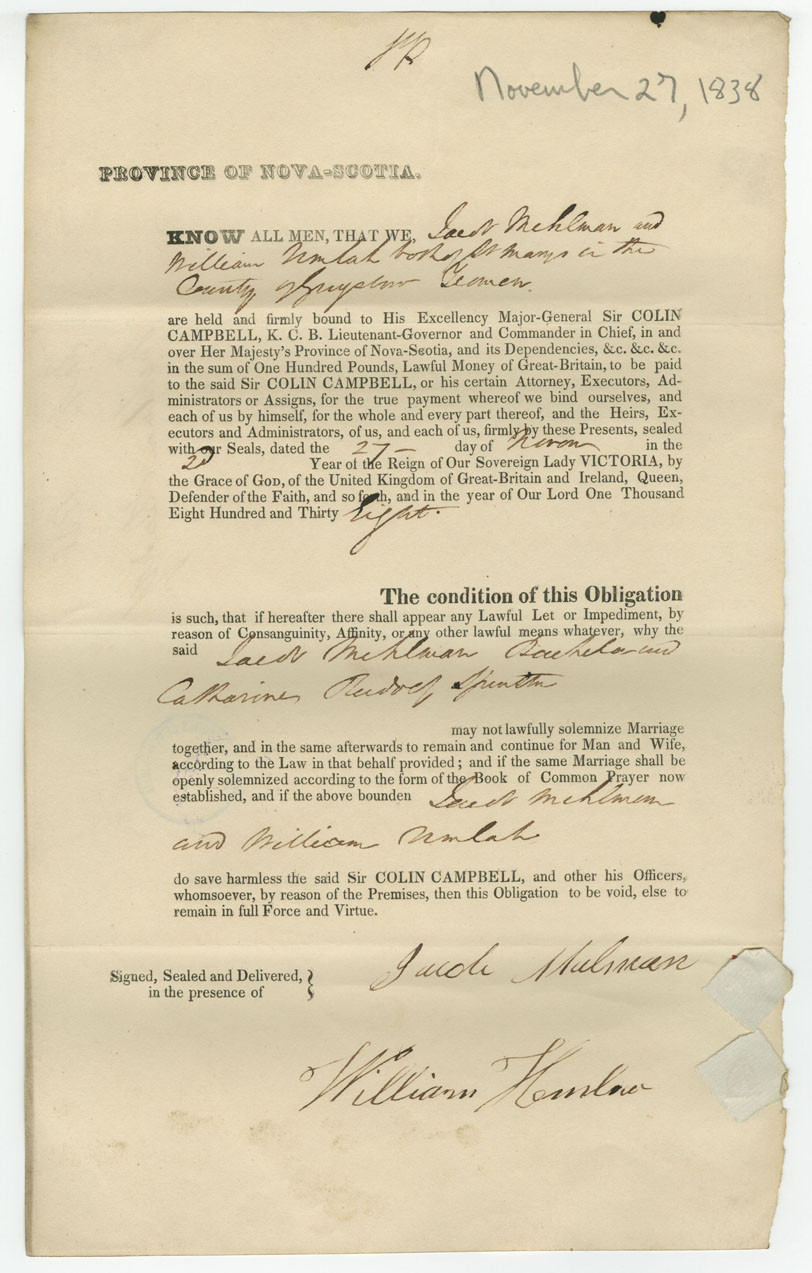 November 27, 1838
PROVINCE OF NOVA-SCOTIA.
KNOW ALL MEN, THAT WE, Jacob Mehlman and
William Umlah both of St Marys in the
County of Guysbor Yeomen.
are held and firmly bound to His Excellency Major-General Sir COLIN
CAMPBELL, K. C. B. Lieutenant-Governor and Commander in Chief, in and
over Her Majesty's Province of Nova-Scotia, and its Dependencies, &c. &c. &c.
in the sum of One Hundred Pounds, Lawful Money of Great-Britain, to be paid
to the said Sir COLIN CAMPBELL, or his certain Attorney, Executors, Ad-
ministrators or Assigns, for the true payment whereof we bind ourselves, and
each of us by himself, for the whole and every part thereof, and the Heirs, Ex-
ecutors and Administrators, of us, and each of us, firmly by these Presents, sealed
with our Seals, dated the 27 – day of Novem in the
2d Year of the Reign of Our Sovereign Lady VICTORIA, by
the Grace of GOD, of the United Kingdom of Great-Britain and Ireland, Queen,
Defender of the Faith, and so forth, and in the year of Our Lord One Thousand
Eight Hundred and Thirty Eight.
The condition of this Obligation
is such, that if hereafter there shall appear any Lawful Let or Impediment, by
reason of Consanguinity, Affinity, or any other lawful means whatever, why the
said Jacob Mehlman Bachelor and
Catharine Rudolf, Spinster
may not lawfully solemnize Marriage
together, and in the same afterwards to remain and continue for Man and Wife,
according to the Law in that behalf provided; and if the same Marriage shall be
openly solemnized according to the form of the Book of Common Prayer now
established, and if the above bounden Jacob Mehlman
and William Umlah
do save harmless the said Sir COLIN CAMPBELL, and other his Officers,
whomsoever, by reason of the Premises, then this Obligation to be void, else to
remain in full Force and Virtue.
Signed, Sealed and Delivered,
in the presence of
William Hemlow